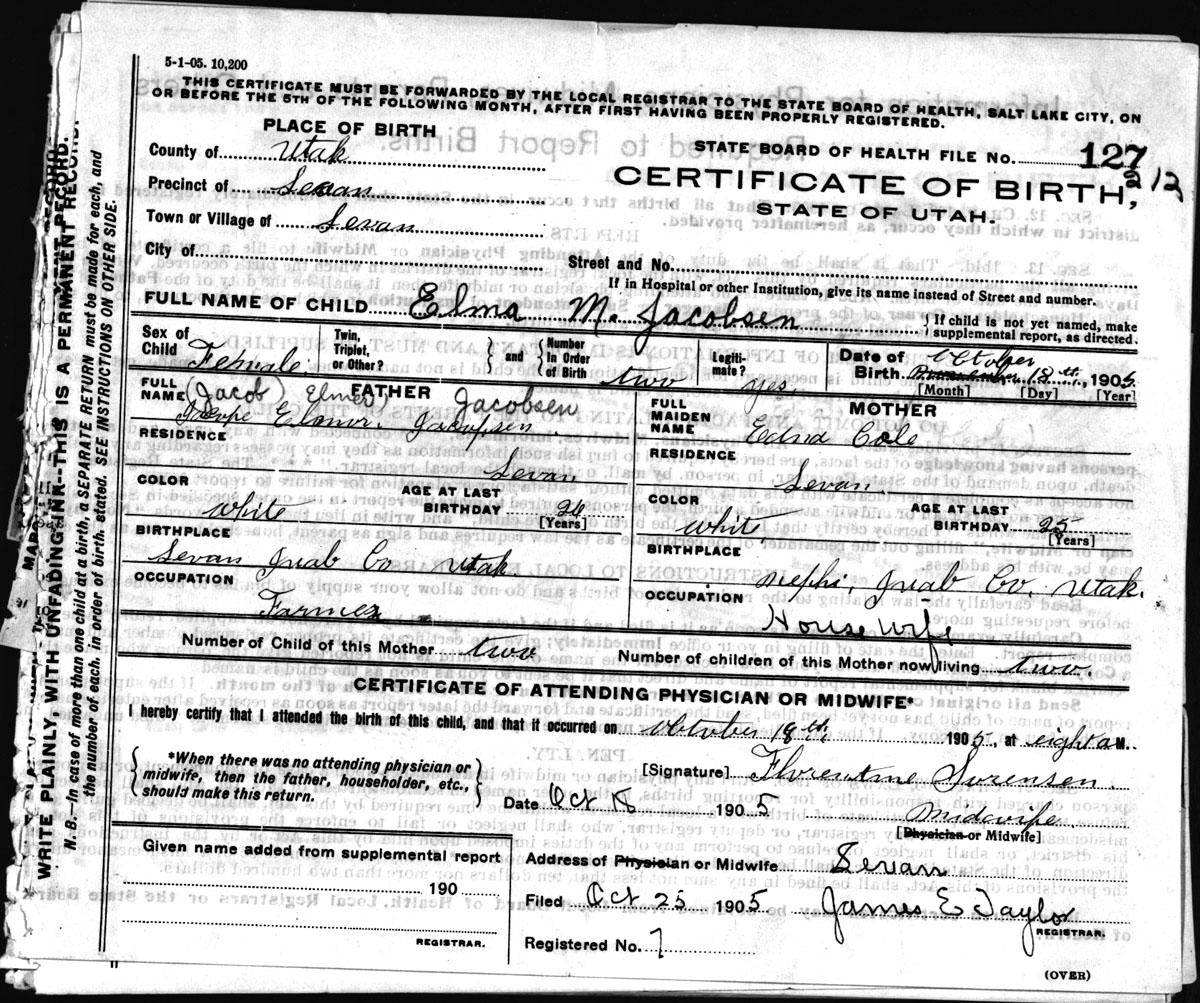 5-1-05. 10,200
THIS CERTIFICATE MUST BE FORWARDED BY THE LOCAL REGISTRAR TO THE STATE BOARD OF HEALTH, SALT LAKE CITY, ON
OR BEFORE THE 5TH OF THE FOLLOWING MONTH, AFTER FIRST HAVING BEEN PROPERLY REGISTERED.
PLACE OF BIRTH
STATE BOARD OF HEALTH FILE No. 127
212
County of Utah
CERTIFICATE OF BIRTH,
Precinct of Levan
STATE OF UTAH.
Town or Village of Levan
City of
Street and No.
If in Hospital or other Institution, give its name instead of Street and number.
FULL NAME OF CHILD Elma M. Jacobsen } If child is not yet named, make supplemental report, as directed.
Sex of Child Female
Twin, Triplet, or Other? } and { Number In Order of Birth two
Legiti-mate? yes
Date of Birth October 18th, 1905
[Month] [Day] [Year]
FATHER
FULL NAME (Jacob) Elmer Jacobsen
Elmer Jacobsen
RESIDENCE
Levan
COLOR White
AGE AT LAST BIRTHDAY 26 [Years]
BIRTHPLACE
Levan Juab Co Utah.
OCCUPATION
Farmer
MOTHER
FULL MAIDEN NAME Edna Cole
RESIDENCE
Levan.
COLOR White
AGE AT LAST BIRTHDAY 25 [Years]
BIRTHPLACE
Nephi, Juab Co. Utah.
OCCUPATION
House wife
Number of Child of this Mother two
Number of children of this Mother now living two.
CERTIFICATE OF ATTENDING PHYSICIAN OR MIDWIFE*
I hereby certify that I attended the birth of this child, and that it occurred on October 18th, 1905, at eight a M.
*When there was no attending physician or
midwife, then the father, householder, etc.,
should make this return.
[Signature] Florentine Sorensen.
Date Oct 18 1905
Midwife
[Physician or Midwife]
Given name added from supplemental report
190
REGISTRAR.
Address of Physician or Midwife Levan
Filed Oct 25 1905 James E Taylor
REGISTRAR.
Registered No. 7
(OVER)
WRITE PLAINLY, WITH UNFADING INK--THIS IS A PERMANENT RECORD.
N.B.--In case of more than one child at a birth, a SEPARATE RETURN must be made for each, and
the number of each, in order of birth, stated. SEE INSTRUCTIONS ON OTHER SIDE.